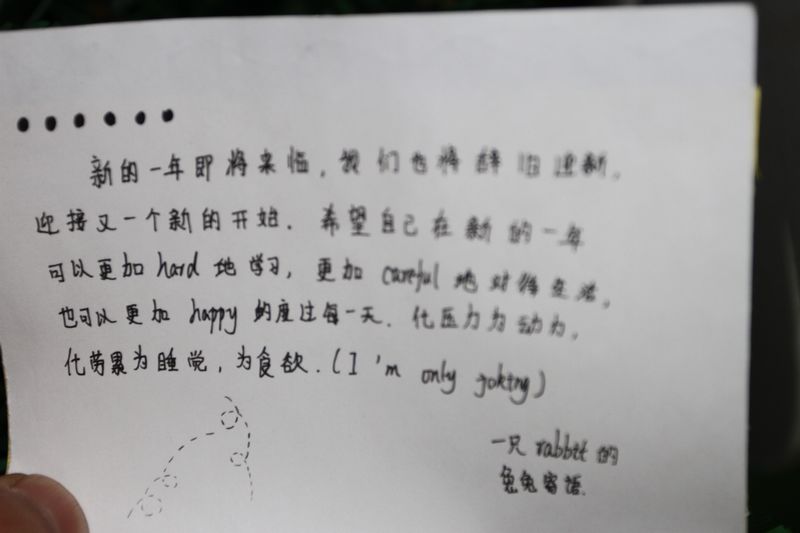 新的一年即将来临，我们也将辞旧迎新，
迎接又一个新的开始。希望自己在新的一年
可以更加 hard 地学习，更加 careful 地对待生活，
也可以更加 happy 的度过每一天。化压力为动力，
化劳累为睡觉，为食欲.(I'm only joking)
一只 rabbit 的
兔兔寄语.